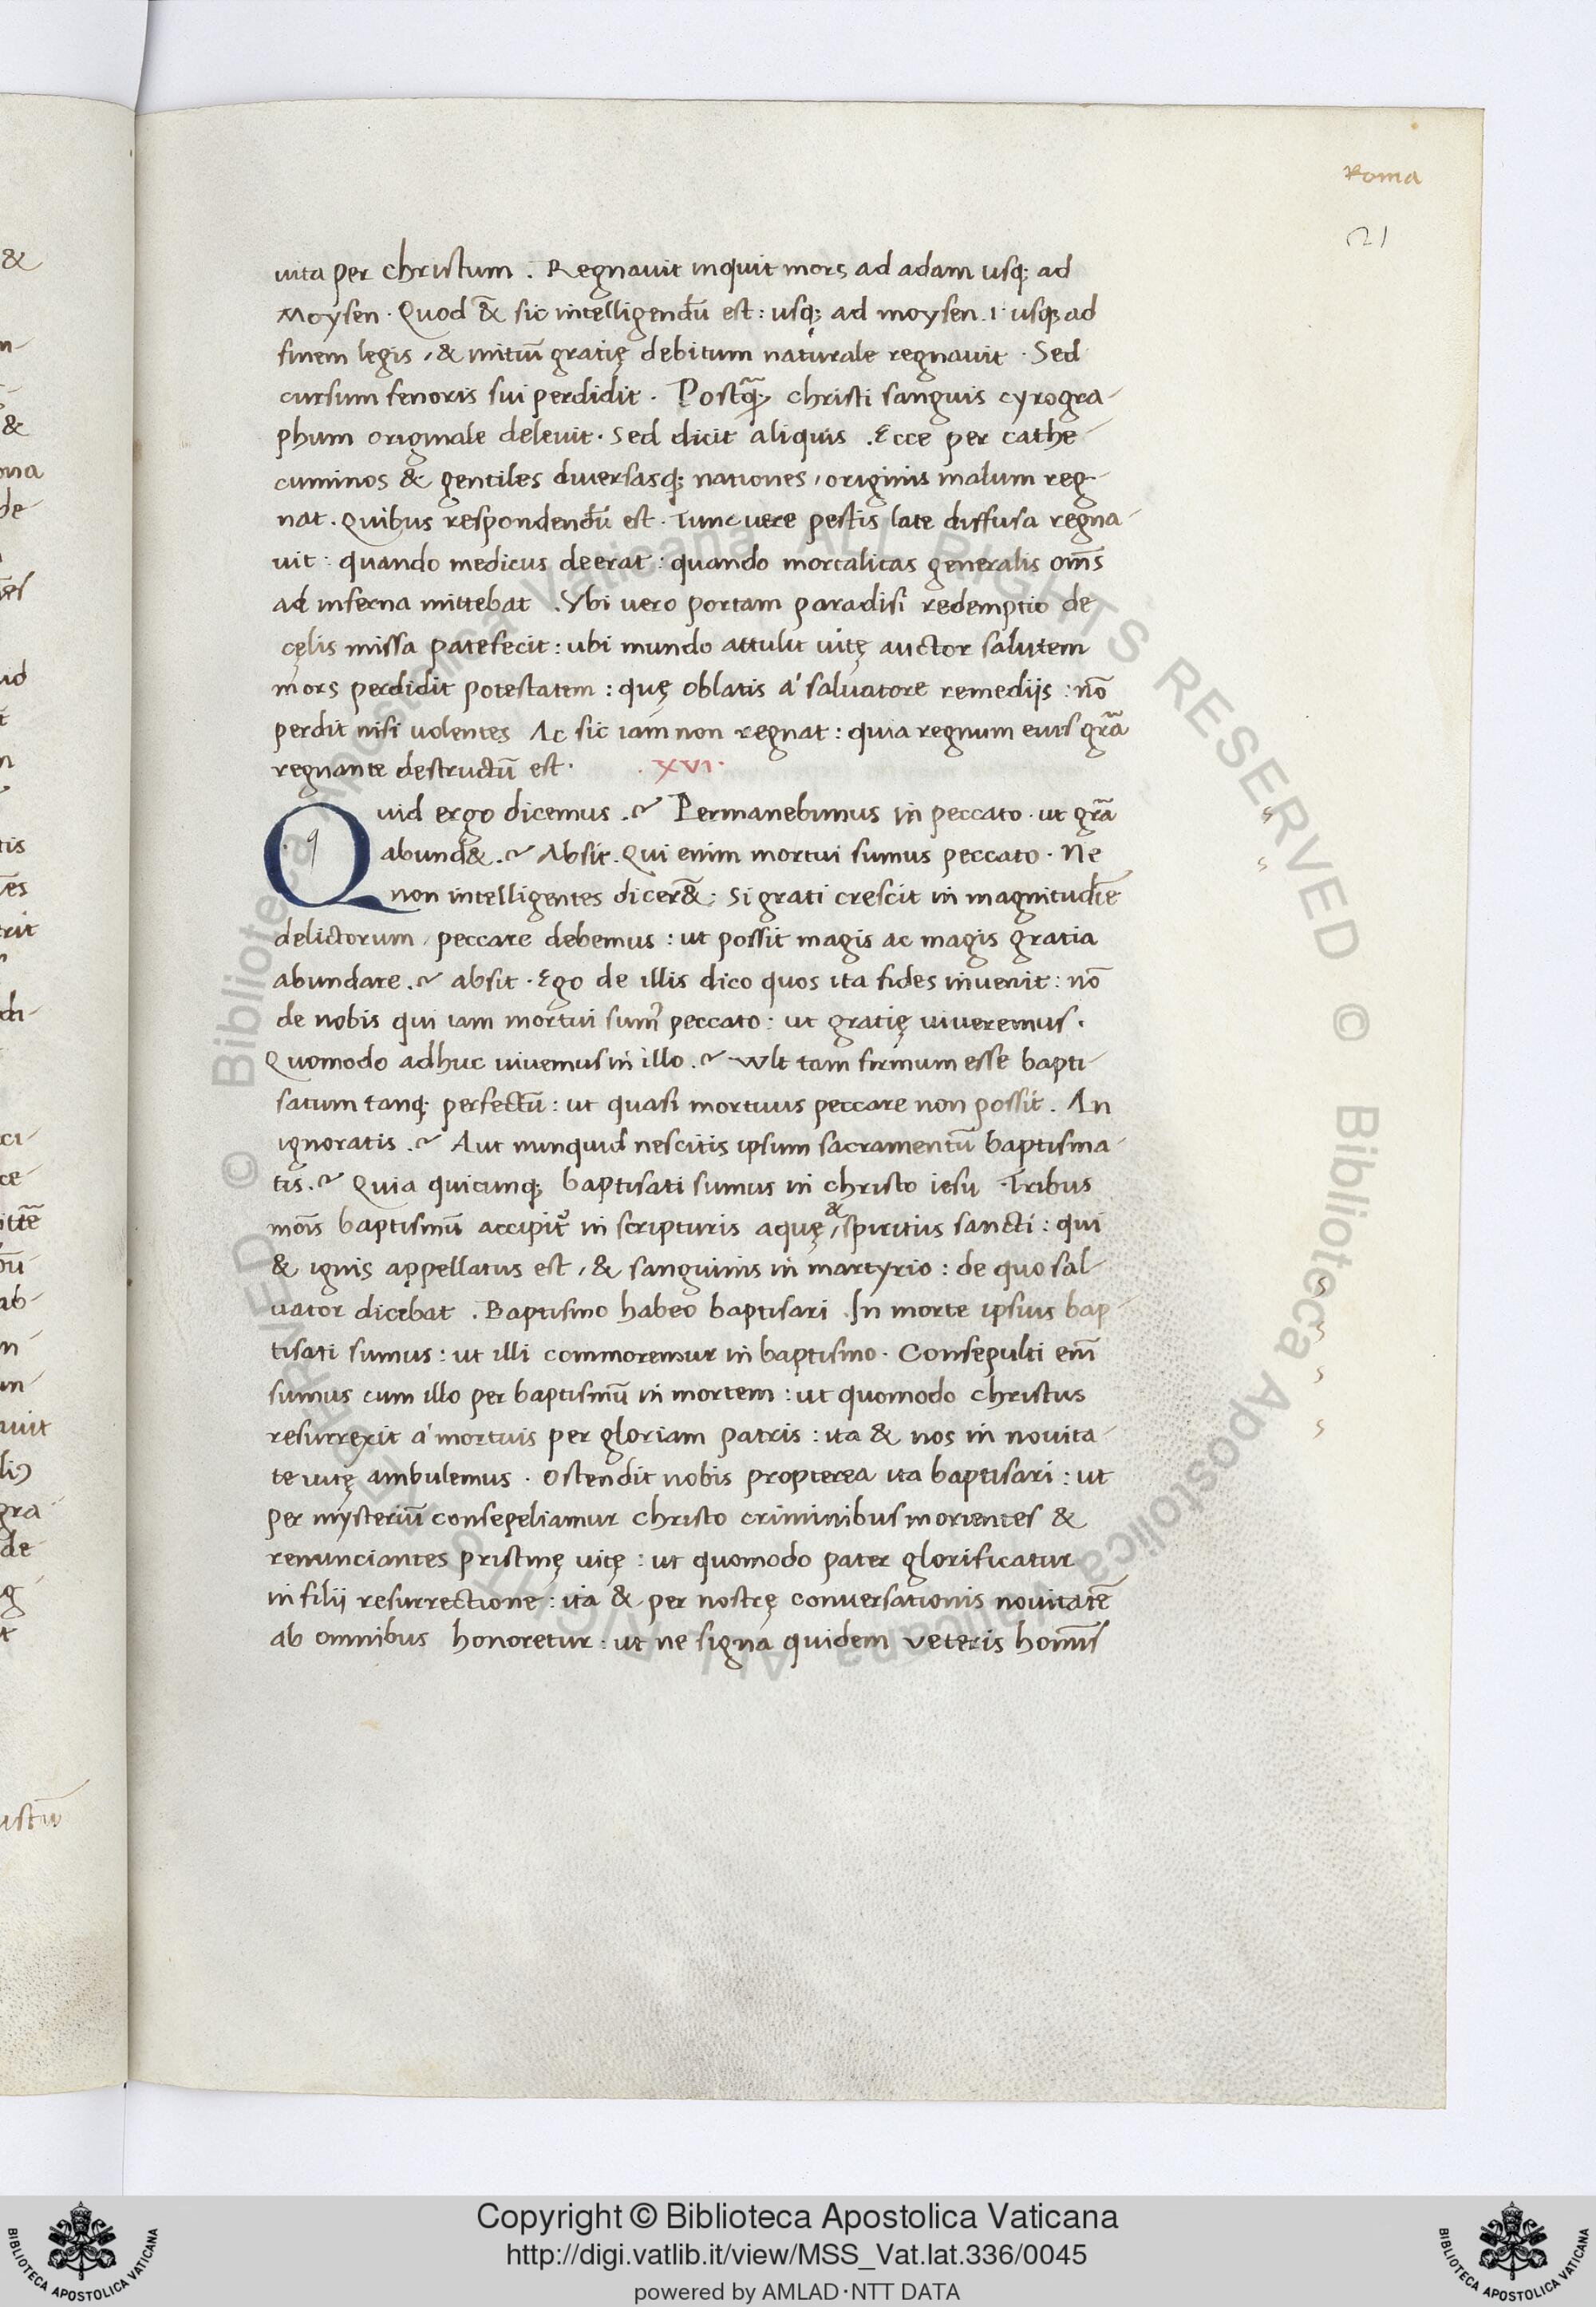 Roma
21
uita per christum . Regnauit inquit mors ad adam usq; ad
Moysen · Quod & sic intelligendũ est : usq; ad moysen .i· usq; ad
finem legis , & initiũ gratię debitum naturale regnauit · Sed
cursum fenoris sui perdidit · Postq̃; christi sanguis cyrogra-
phum originale deleuit · Sed dicit aliquis . Ecce per cathe-
cuminos & gentiles diuersasq; nationes , originis malum reg-
nat . Quibus respondendũ est · Tunc uere pestis late diffusa regna-
uit : quando medicus deerat : quando mortalitas generalis om̃s
ad inferna mittebat . Vbi uero portam paradisi redemptio de
cęlis missa patefecit : ubi mundo attulit uitę auctor salutem
mors perdidit potestatem : quę oblatis a' saluatore remedijs : nõ
perdit nisi uolentes Ac sic iam non regnat : quia regnum eius grã
regnante destructũ est · . XVI ·
Quid ergo dicemus .~ Permanebimus in peccato · ut grã
abund& .~ Absit . Qui enim mortui sumus peccato · Ne
non intelligentes dicer& ; Si grati crescit in magnitudĩe
delictorum , peccare debemus : ut possit magis ac magis gratia
abundare .~ absit · Ego de illis dico quos ita fides inuenit : nõ
de nobis qui iam mortui sum᾽ peccato : ut gratię uiueremus .
Quomodo adhuc uiuemus in illo .~ Wlt tam firmum esse bapti-
satum tanq; perfectũ : ut quasi mortuus peccare non possit . An
ignoratis .~ Aut nunquid nescitis ipsum sacramentũ baptisma-
tis .~ Quia quicunq; baptisati sumus in christo iesu · Tribus
mõis baptismũ accipit᾽ in scripturis aquę , & spiritus sancti : qui
& ignis appellatus est , & sanguinis in martyrio : de quo sal-
uator dicebat . Baptismo habeo baptisari . In morte ipsius bap-
tisati sumus : ut illi commoremur in baptismo · Consepulti em̃
sumus cum illo per baptismũ in mortem : ut quomodo christus
resurrexit a' mortuis per gloriam patris : ita & nos in nouita-
te uitę ambulemus · Ostendit nobis propterea ita baptisari : ut
per mysteriũ consepeliamur christo criminibus morientes &
renunciantes pristinę uitę : ut quomodo pater glorificatur
in filii resurrectione : ita & per nostrę conuersationis nouitatẽ
ab omnibus honoretur : ut ne signa quidem ueteris homĩs
Copyright © Biblioteca Apostolica Vaticana
http://digi.vatlib.it/view/MSS_Vat.lat.336/0045
powered by AMLAD·NTT DATA